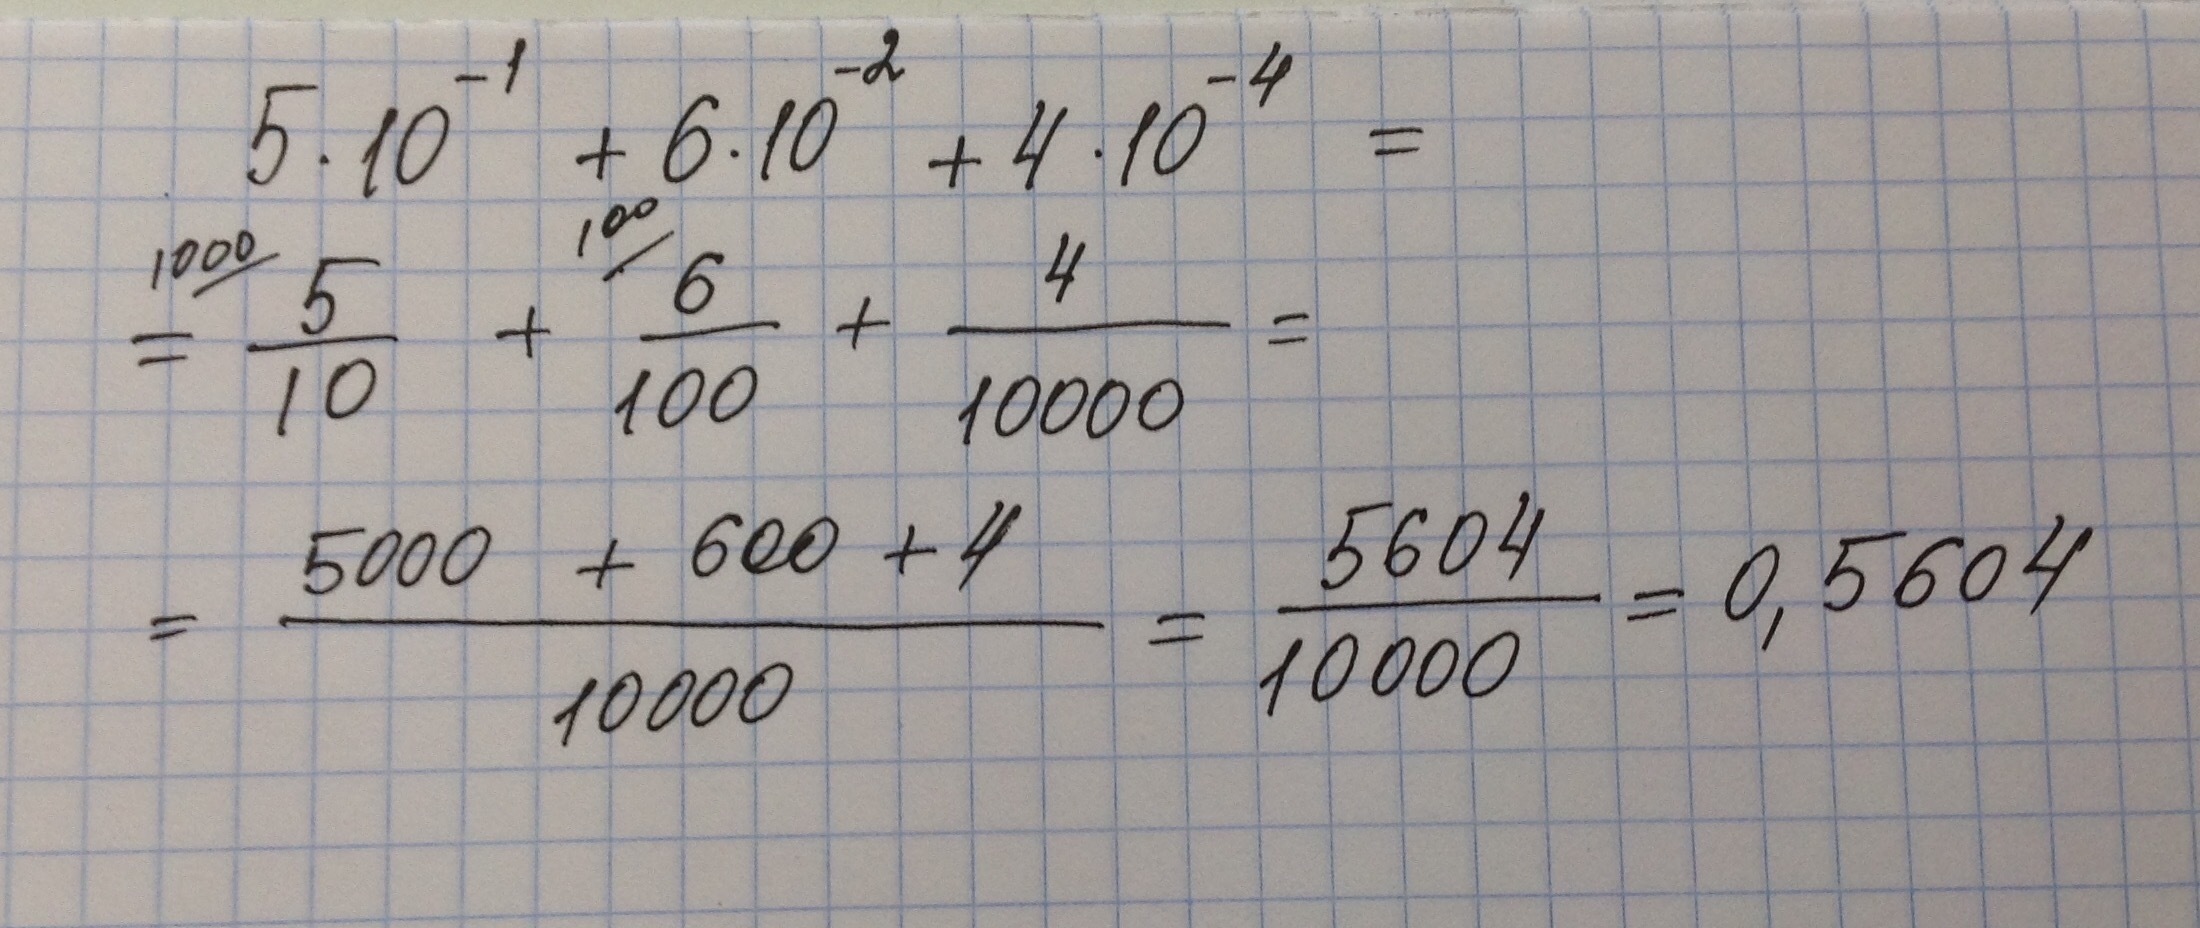 5 · 10⁻¹ + 6 · 10⁻² + 4 · 10⁻⁴ =
= ¹⁰⁰⁰/ 5/10 + ¹⁰⁰/ 6/100 + 4/10000 =
= (5000 + 600 + 4)/10000 = 5604/10000 = 0,5604